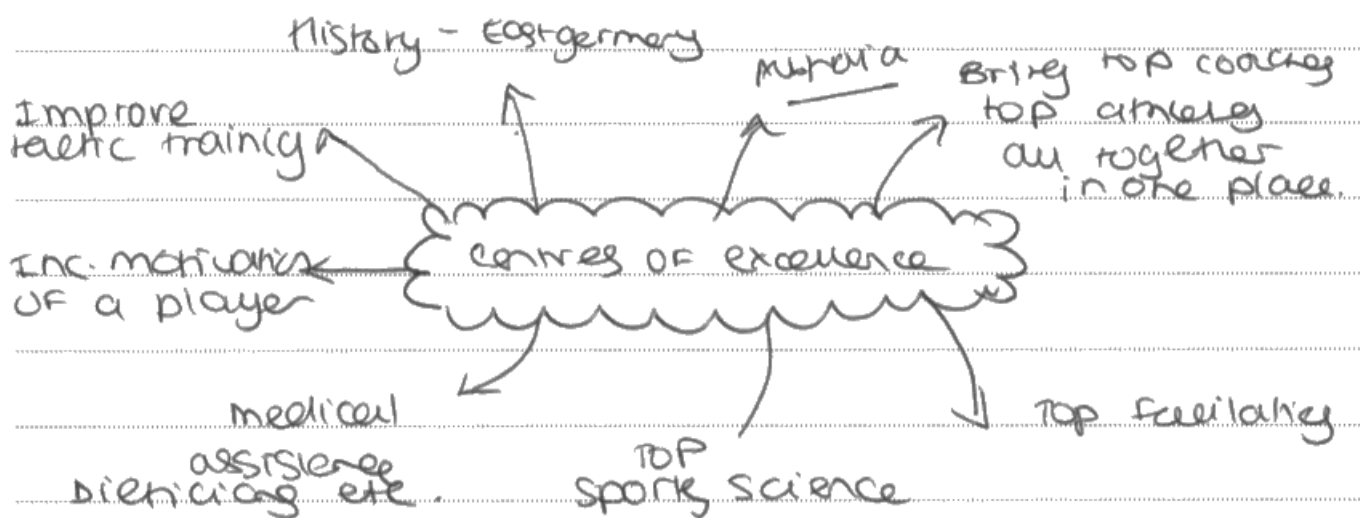 History - East germany
Improve
tactic training
Bring top coaches
top athletes
all together
in one place.
centres of excellence
Inc. motivation
of a player
medical
assistence
Dieticians etc.
TOP
Sports science
Top facilaties